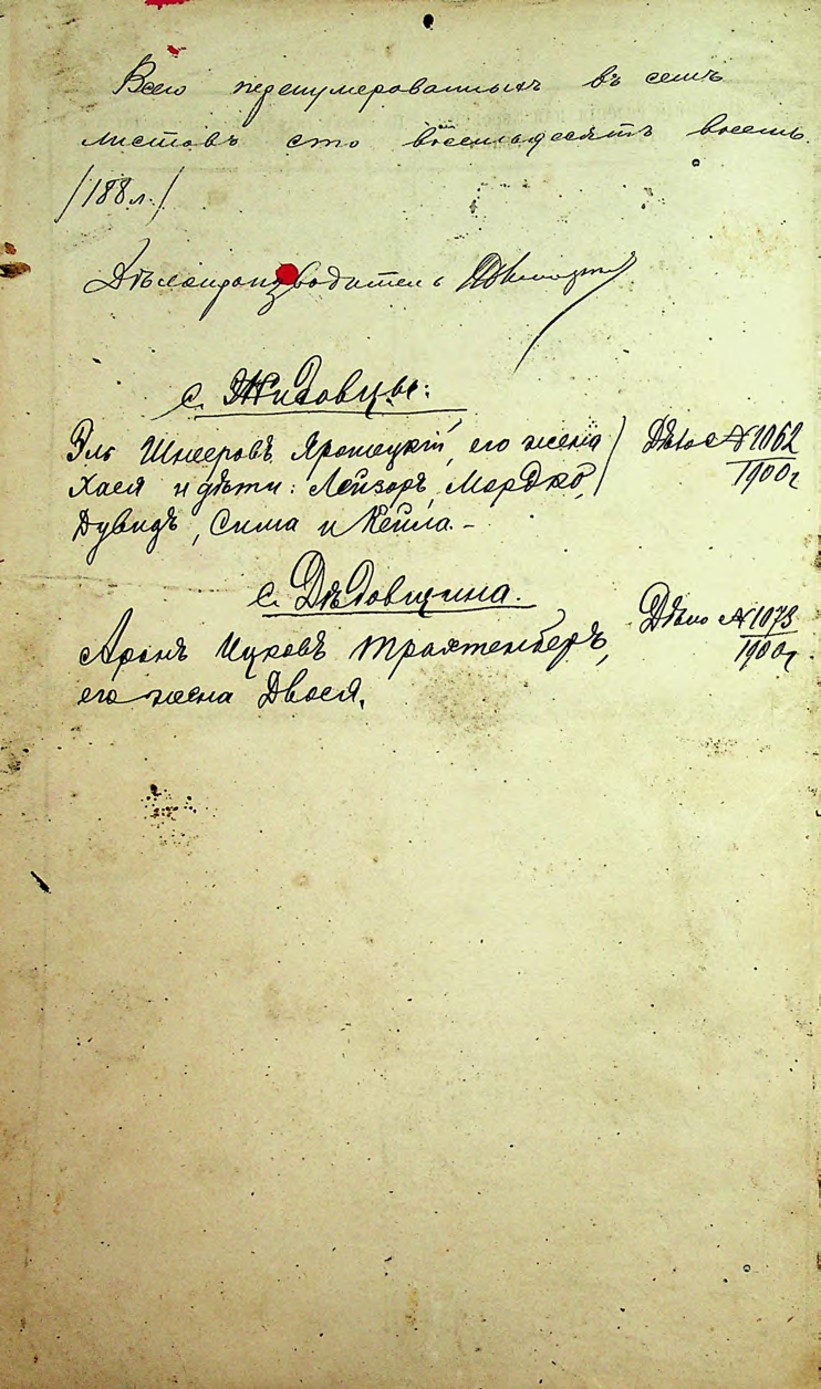 Всего перенумерованныхъ въ семъ
листовъ сто восемьдесятъ восемь.
/188 л./
Дѣлопроизводитель
с. Жидовцы:
Эль Шнееровъ Ярошецкій, его жена
Хася и дѣти: Лейзоръ, Мордко,
Дувидъ, Сима и Кейла. –
Дѣло №1062
1900 г
с. Дѣдовщина.
Аронъ Ицковъ Трахтенбергъ,
его жена Двося,
Дѣло №1073
1900 г.